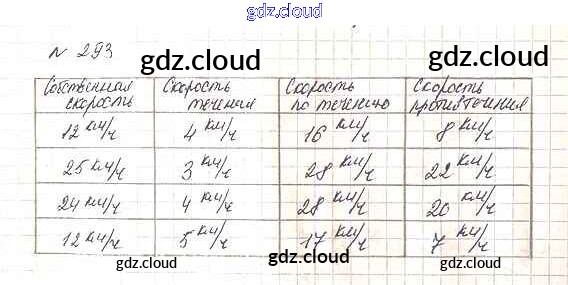 gdz.cloud
№ 293
gdz.cloud gdz.cloud
Собственная скорость Скорость течения Скорость по течению Скорость против течения
12 км/ч 4 км/ч 16 км/ч 8 км/ч
25 км/ч 3 км/ч 28 км/ч 22 км/ч
24 км/ч 4 км/ч 28 км/ч 20 км/ч
12 км/ч 5 км/ч 17 км/ч 7 км/ч
gdz.cloud gdz.cloud
gdz.cloud